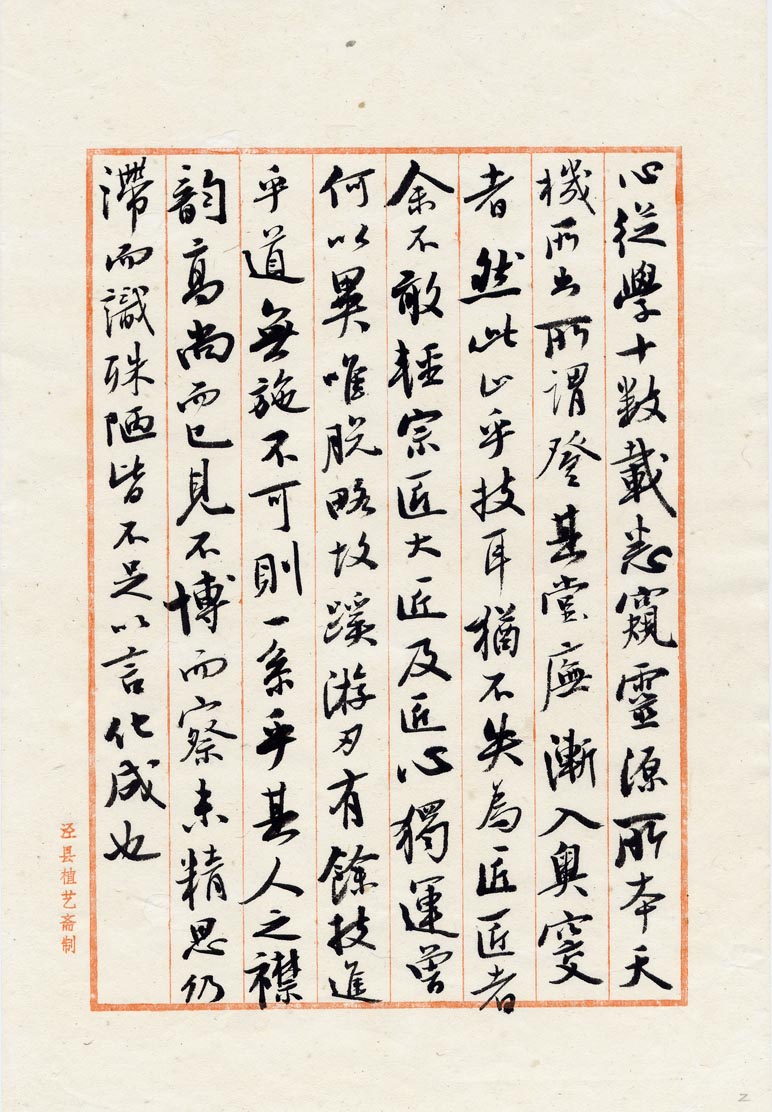 心从學十数載悉窺靈源所本天
機所出所谓登其堂廡漸入奥窔
者然此止乎技耳猶不失為匠匠者
余不敢輕宗匠大匠及匠心獨運曾
何以異唯脱略故蹊游刃有餘技進
乎道無施不可則一系乎其人之襟
韵高尚而已見不博而察未精思仍
滞而識殊陋皆不足以言化成也
泾县植艺斋制
2